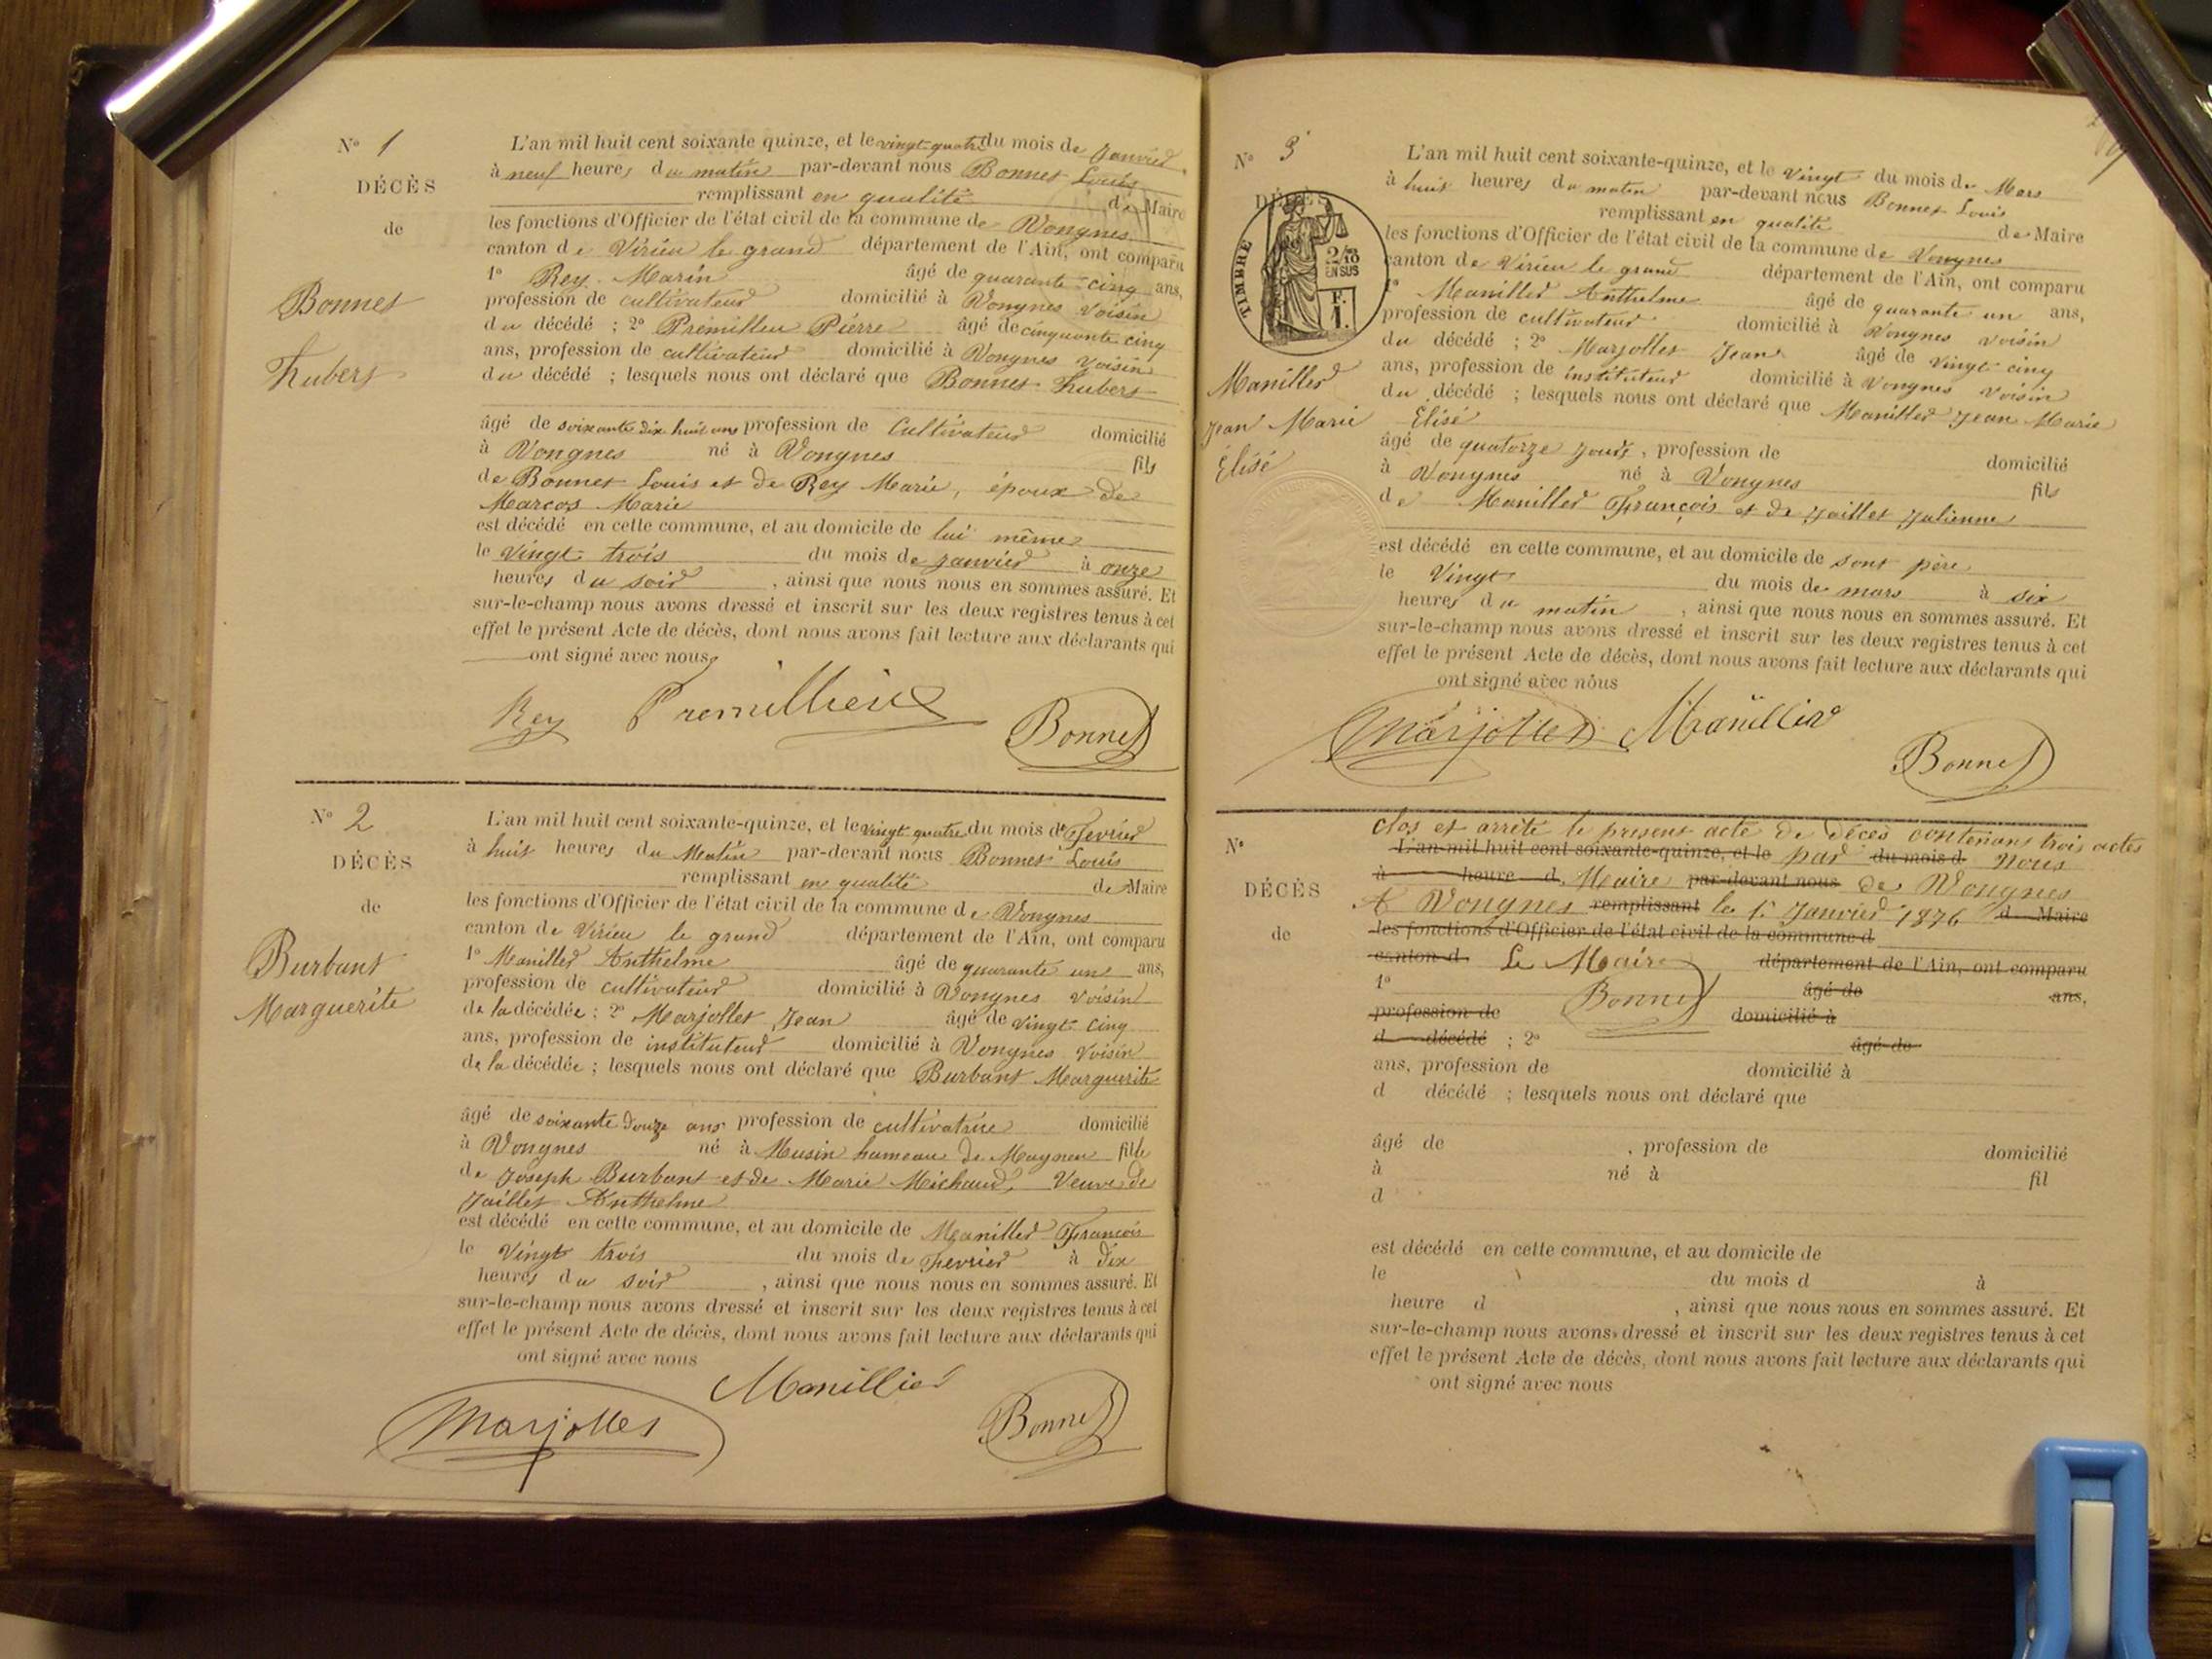 N° 1
DÉCÈS
de
Bonnet
hubert
L'an mil huit cent soixante quinze, et le vingt-quatre du mois de Janvier
à neuf heures du matin par-devant nous Bonnet Louis
remplissant en qualité de Maire
les fonctions d'Officier de l'état civil de la commune de Vongnes
canton de Virieu le grand département de l'Ain, ont comparu
1° Rey Marin âgé de quarante-cinq ans,
profession de cultivateur domicilié à Vongnes voisin
du décédé ; 2° Prémilleu Pierre âgé de cinquante cinq
ans, profession de cultivateur domicilié à Vongnes voisin
du décédé ; lesquels nous ont déclaré que Bonnet hubert
âgé de soixante dix huit ans profession de Cultivateur domicilié
à Vongnes né à Vongnes fils
de Bonnet Louis et de Rey Marie, époux de
Marcos Marie
est décédé en cette commune, et au domicile de lui même
le vingt trois du mois de janvier à onze
heures du soir , ainsi que nous nous en sommes assuré. Et
sur-le-champ nous avons dressé et inscrit sur les deux registres tenus à cet
effet le présent Acte de décès, dont nous avons fait lecture aux déclarants qui
ont signé avec nous
Rey Premillieu Bonnet
N° 2
DÉCÈS
de
Burbant
Marguerite
L'an mil huit cent soixante-quinze, et le vingt quatre du mois de Fevrier
à huit heures du Matin par-devant nous Bonnet Louis
remplissant en qualité de Maire
les fonctions d'Officier de l'état civil de la commune de Vongnes
canton de Virieu le grand département de l'Ain, ont comparu
1° Manillier Anthelme âgé de quarante un ans,
profession de cultivateur domicilié à Vongnes voisin
de la décédée ; 2° Marjollet Jean âgé de vingt cinq
ans, profession de instituteur domicilié à Vongnes voisin
de la décédée ; lesquels nous ont déclaré que Burbant Marguerite
âgé de soixante douze ans profession de cultivatrice domicilié
à Vongnes né à Musin hameau de Magneu fille
de Joseph Burbant et de Marie Michaud, Veuve de
Jaillet Anthelme
est décédé en cette commune, et au domicile de Manillier François
le vingt trois du mois de Fevrier à dix
heures du soir , ainsi que nous nous en sommes assuré. Et
sur-le-champ nous avons dressé et inscrit sur les deux registres tenus à cet
effet le présent Acte de décès, dont nous avons fait lecture aux déclarants qui
ont signé avec nous
Manillier
Marjollet Bonnet
N° 3
DÉCÈS
TIMBRE
2/10
EN SUS
F.
1.
Manillier
Jean Marie
Elisé
L'an mil huit cent soixante-quinze, et le Vingt du mois de Mars
à huit heures du matin par-devant nous Bonnet Louis
remplissant en qualité de Maire
les fonctions d'Officier de l'état civil de la commune de Vongnes
canton de Virieu le grand département de l'Ain, ont comparu
1° Manillier Anthelme âgé de quarante un ans,
profession de cultivateur domicilié à Vongnes voisin
du décédé ; 2° Marjollet Jean âgé de vingt cinq
ans, profession de instituteur domicilié à Vongnes voisin
du décédé ; lesquels nous ont déclaré que Manillier Jean Marie
Elisé
âgé de quatorze jours, profession de domicilié
à Vongnes né à Vongnes fils
de Manillier François et de Jaillet Julienne
est décédé en cette commune, et au domicile de sont père
le Vingt du mois de mars à six
heures du matin , ainsi que nous nous en sommes assuré. Et
sur-le-champ nous avons dressé et inscrit sur les deux registres tenus à cet
effet le présent Acte de décès, dont nous avons fait lecture aux déclarants qui
ont signé avec nous
Marjollet Manillier
Bonnet
N°
DÉCÈS
de
clos et arrêté le present acte de décès contenant trois actes
L'an mil huit cent soixante-quinze, et le par du mois d nous
à heure d Maire par-devant nous de Vongnes
A Vongnes remplissant le 1er Janvier 1876 d Maire
les fonctions d'Officier de l'état civil de la commune d
canton d Le Maire département de l'Ain, ont comparu
1° Bonnet âgé de ans,
profession de domicilié à
d décédé ; 2° âgé de
ans, profession de domicilié à
d décédé ; lesquels nous ont déclaré que
âgé de , profession de domicilié
à né à fil
d
est décédé en cette commune, et au domicile de
le du mois d à
heure d , ainsi que nous nous en sommes assuré. Et
sur-le-champ nous avons dressé et inscrit sur les deux registres tenus à cet
effet le présent Acte de décès, dont nous avons fait lecture aux déclarants qui
ont signé avec nous